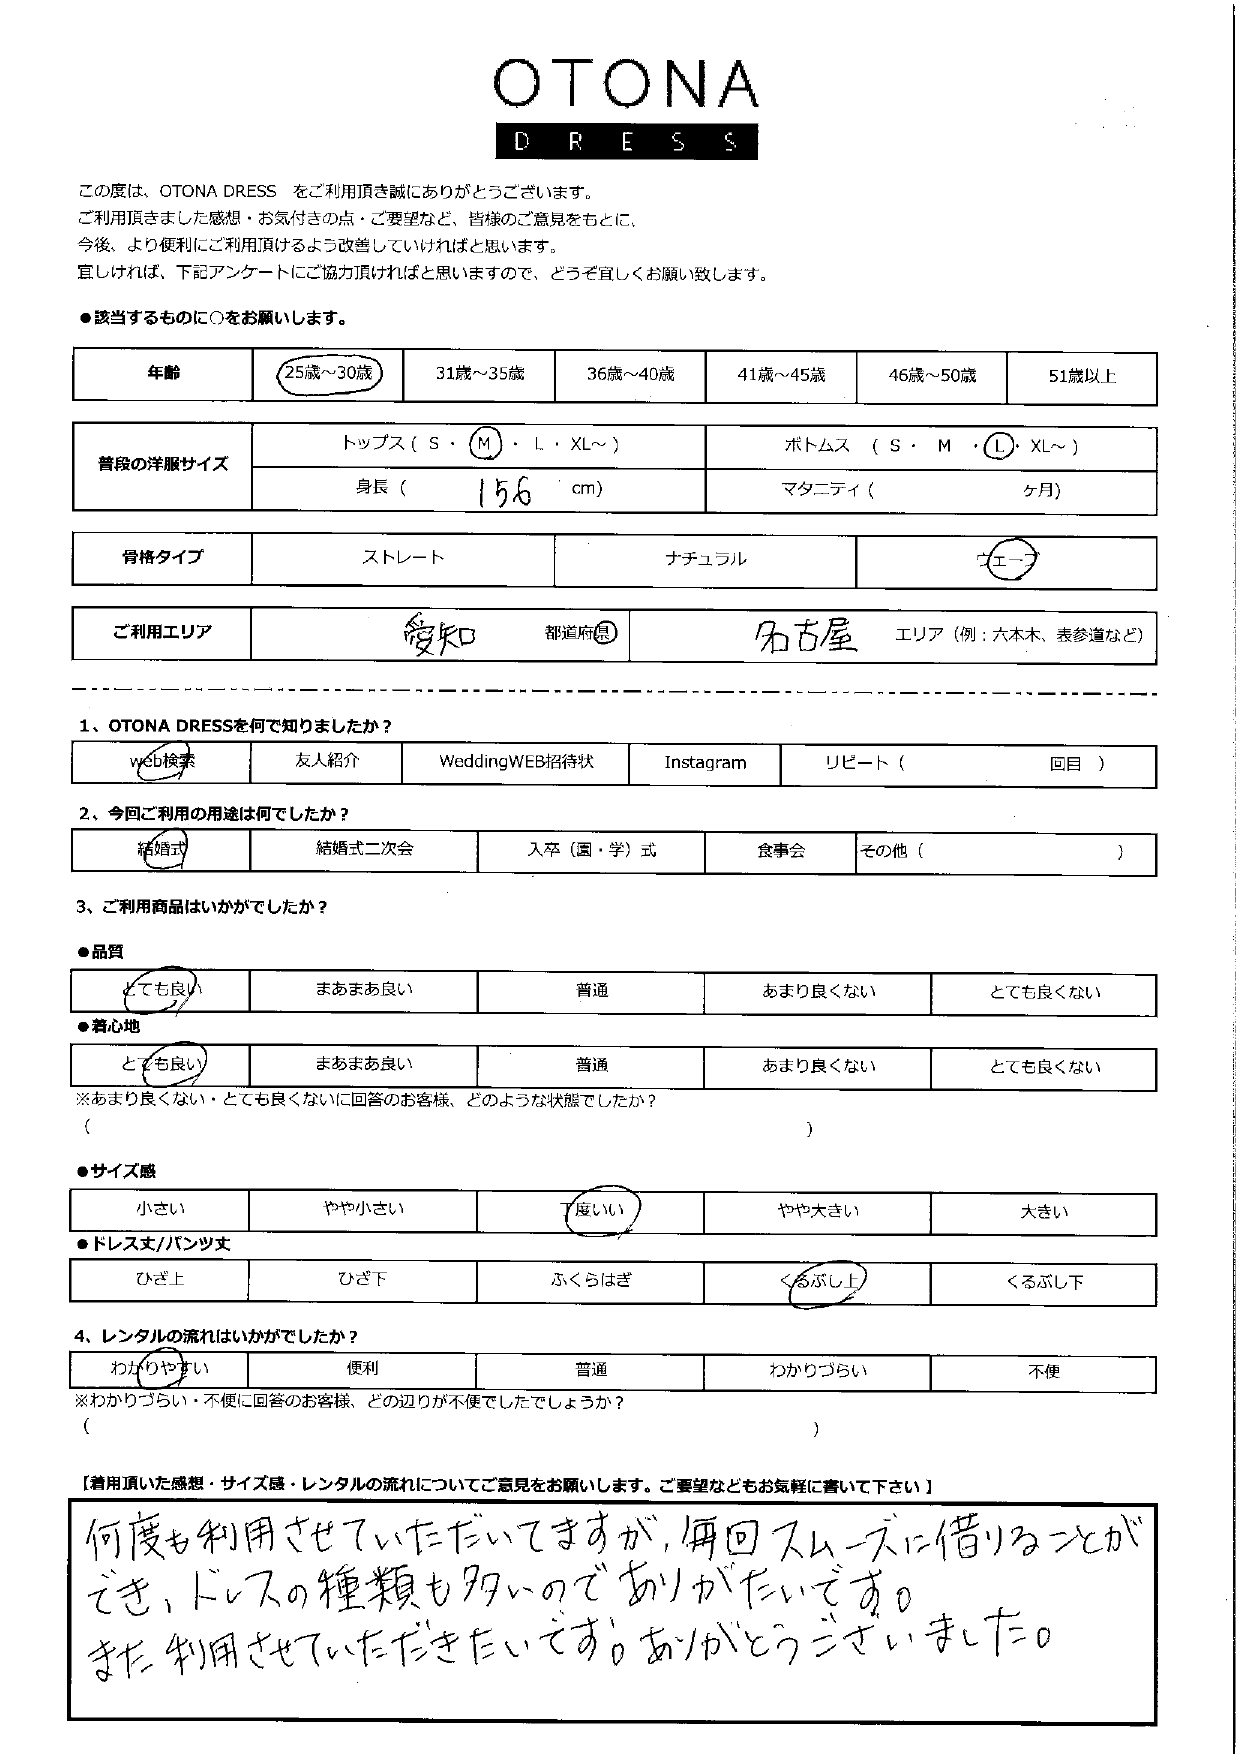 OTONA
DRESS
この度は、OTONA DRESS　をご利用頂き誠にありがとうございます。
ご利用頂きました感想・お気付きの点・ご要望など、皆様のご意見をもとに、
今後、より便利にご利用頂けるよう改善していければと思います。
宜しければ、下記アンケートにご協力頂ければと思いますので、どうぞ宜しくお願い致します。
●該当するものに○をお願いします。
年齢 25歳～30歳 31歳～35歳 36歳～40歳 41歳～45歳 46歳～50歳 51歳以上
普段の洋服サイズ トップス ( S ・ M ・ L ・ XL～ ) ボトムス ( S ・ M ・ L ・ XL～ )
身長 ( 156 cm) マタニティ ( ケ月)
骨格タイプ ストレート ナチュラル ウェーブ
ご利用エリア 愛知 都道府県 名古屋 エリア（例：六本木、表参道など）
1、OTONA DRESSを何で知りましたか？
web検索 友人紹介 WeddingWEB招待状 Instagram リピート（ 回目 ）
2、今回ご利用の用途は何でしたか？
結婚式 結婚式二次会 入卒（園・学）式 食事会 その他（ ）
3、ご利用商品はいかがでしたか？
●品質
とても良い まあまあ良い 普通 あまり良くない とても良くない
●着心地
とても良い まあまあ良い 普通 あまり良くない とても良くない
※あまり良くない・とても良くないに回答のお客様、どのような状態でしたか？
( )
●サイズ感
小さい やや小さい 丁度いい やや大きい 大きい
●ドレス丈/パンツ丈
ひざ上 ひざ下 ふくらはぎ くるぶし上 くるぶし下
4、レンタルの流れはいかがでしたか？
わかりやすい 便利 普通 わかりづらい 不便
※わかりづらい・不便に回答のお客様、どの辺りが不便でしたでしょうか？
( )
【着用頂いた感想・サイズ感・レンタルの流れについてご意見をお願いします。ご要望などもお気軽に書いて下さい 】
何度も利用させていただいてますが、毎回スムーズに借りることが
でき、ドレスの種類も多いのでありがたいです。
また利用させていただきたいです。ありがとうございました。